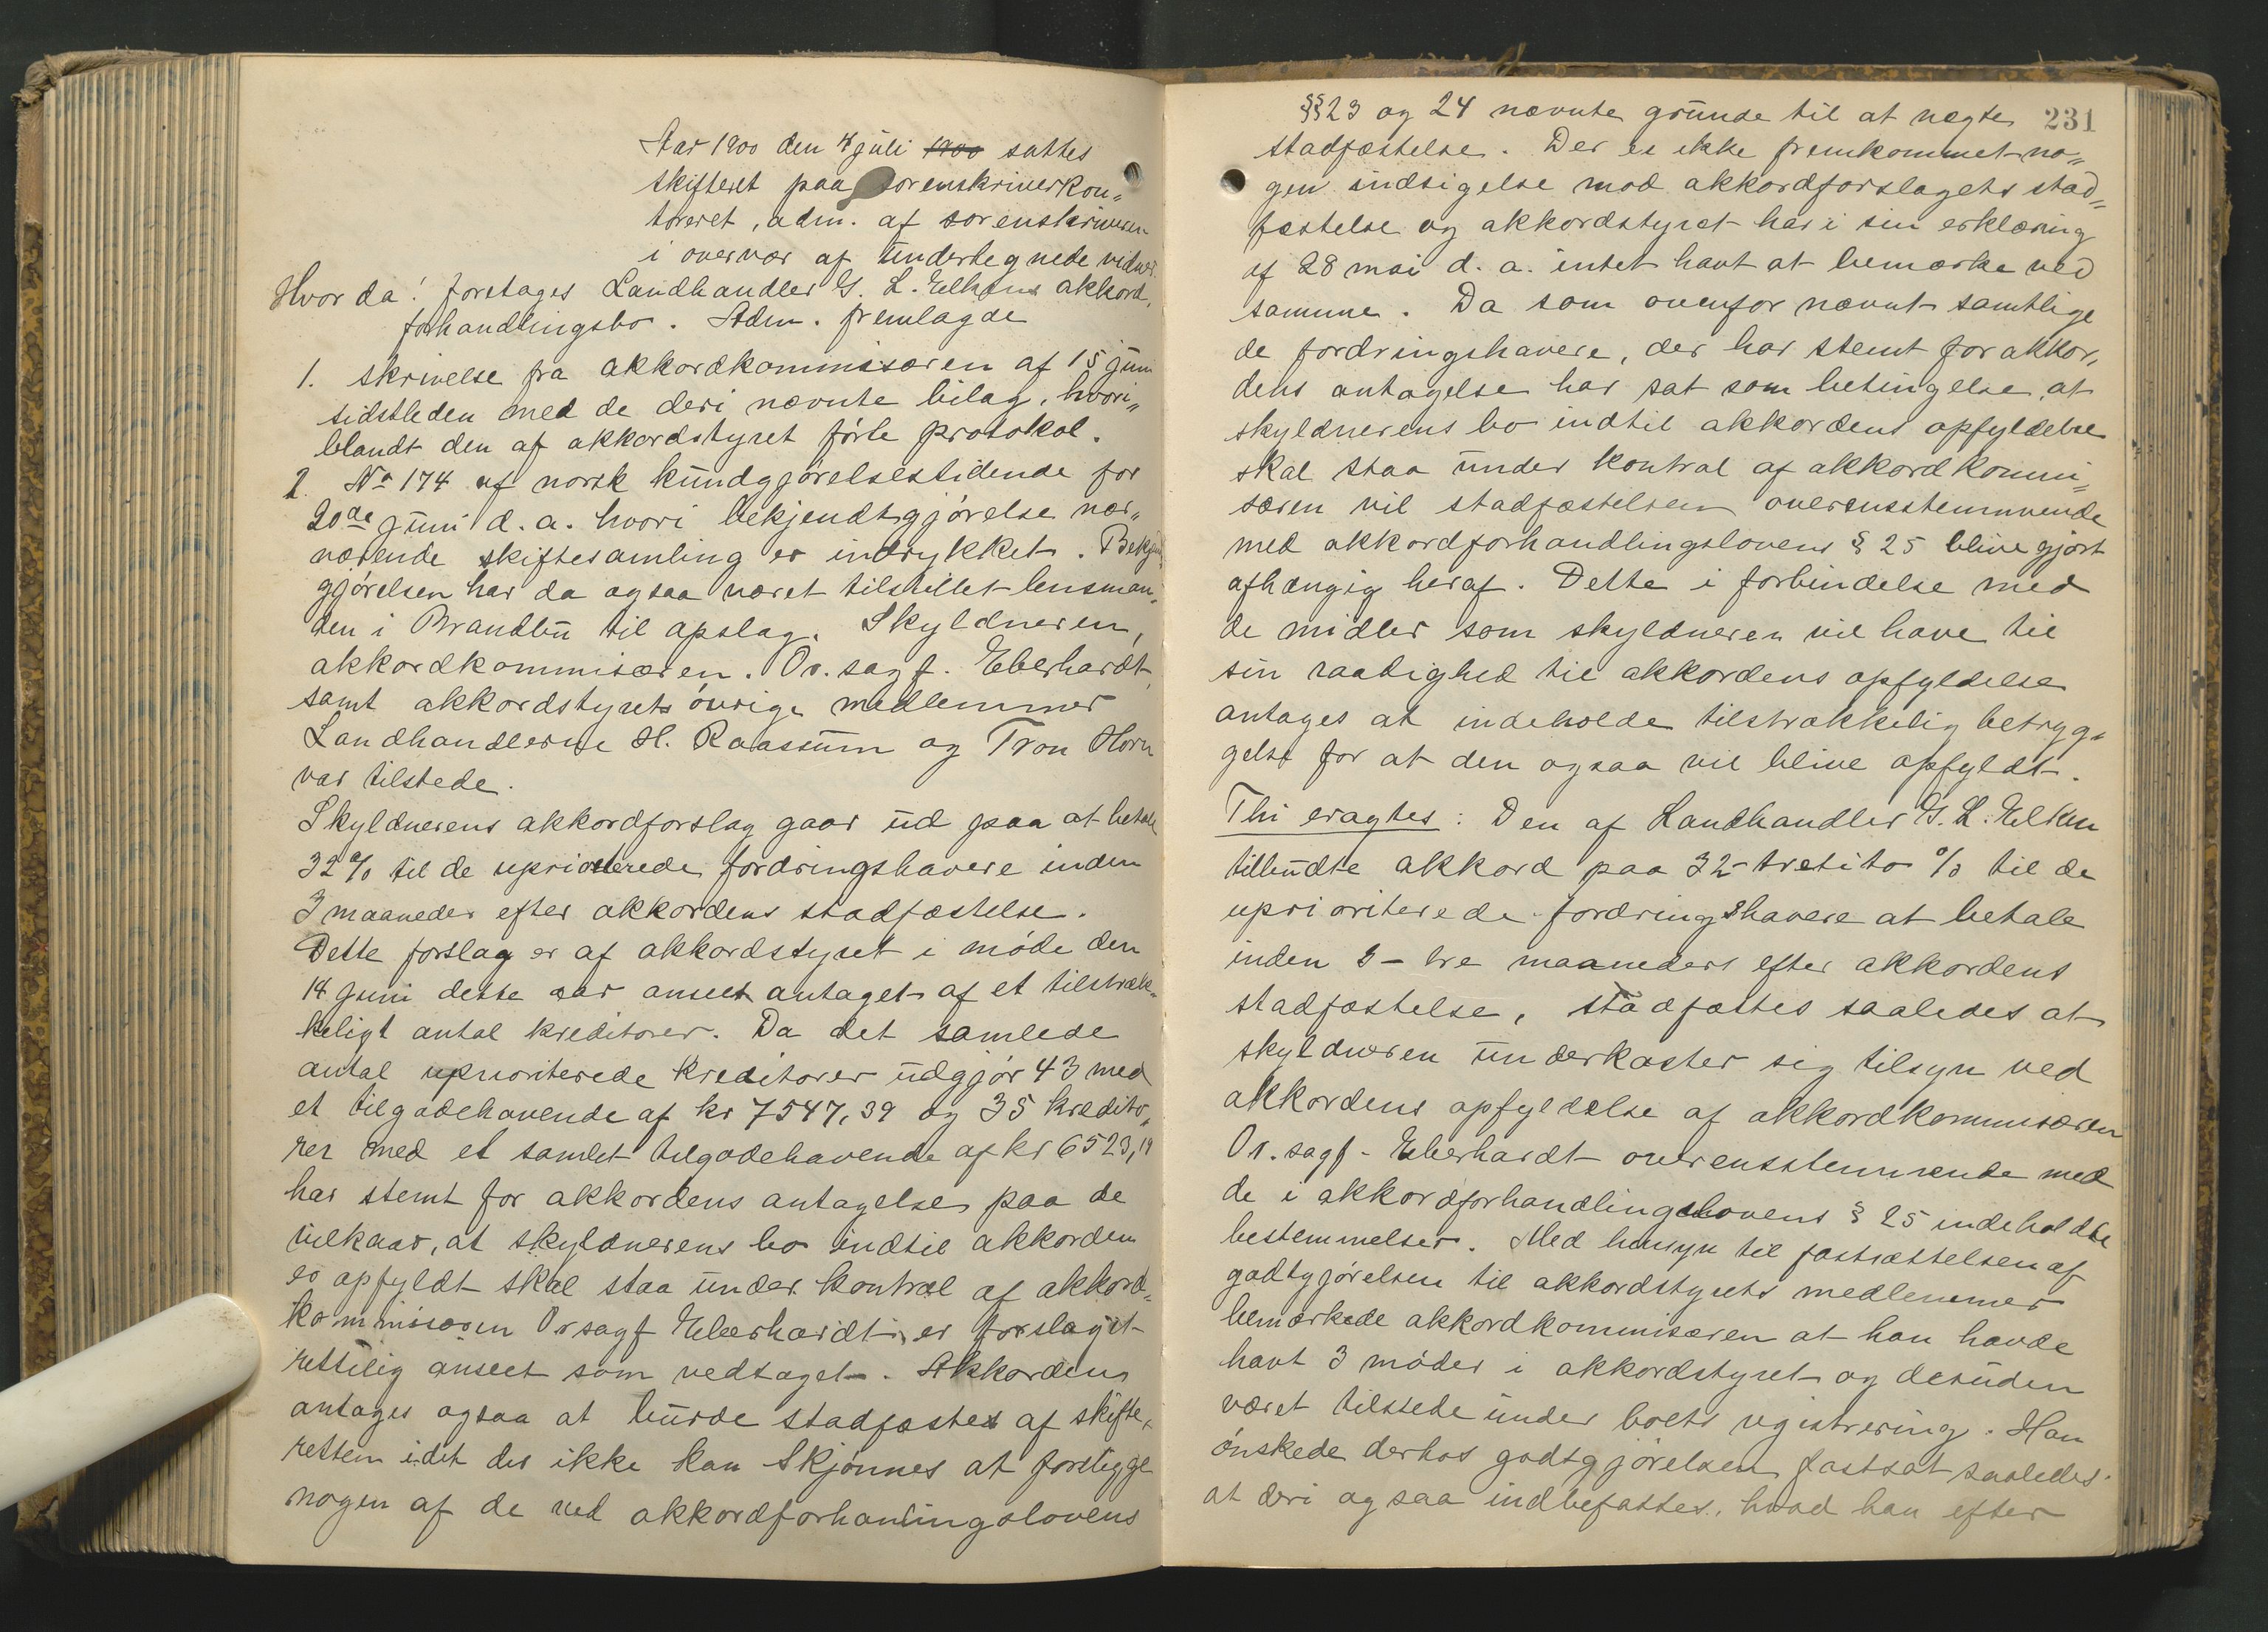 Aar 1900 den 4 juli 1900 sattes
skifteret paa sorenskriverkon„
toreret, adm. af sorenskriveren
i overvær af undertegnede vidner.
Hvor da! foretages Landhandler G. L. Elkens akkord„
forhandlingsbo. Adm. fremlagde
1. skrivelse fra akkordkommissæren af 15 juni
sidstleden med de deri nævnte bilag, hvori„
blandt den af akkordstyret førte protokol.
2. No 174 af norsk kundgjørelsestidende for
20de juni d. a. hvori bekjendtgjørelse nær„
værende skiftesamling er indrykket. Bekjendt
gjørelsen har da ogsaa været tilstillet lensman„
den i Brandbu til opslag. Skyldneren,
akkordkommisæren. Or. sagf. Eberhardt
samt akkordstyrets øvrige medlemmer
Landhandlerne H. Raassum og Tron Horn
var tilstede.
Skyldnerens akkordforslag gaar ud paa at betale
32 % til de uprioriterede fordringshavere inden
3 maaneder efter akkordens stadfæstelse.
Dette forslag er af akkordstyret i møde den
14 juni dette aar anseet antaget af et tilstræk„
keligt antal kreditorer. Da det samlede
antal uprioriterede kreditorer udgjør 43 med
et tilgodehavende af kr 7547,39 og 35 kredito„
rer med et samlet tilgodehavende af kr 6523,19
har stemt for akkordens antagelse paa de
vilkaar, at skyldnerens bo indtil akkorden
er opfyldt skal staa under kontrol af akkord„
kommissæren Or sagf Eberhardt, er forslaget
rettelig anseet som vedtaget. Akkorden
antages ogsaa at burde stadfæstes af skifte„
retten idet der ikke kan skjønnes at foreligge
nogen af de ved akkordforhanlingslovens
231
§§ 23 og 24 nævnte grunde til at nægte
stadfæstelse. Der er ikke fremkommet no„
gen indsigelse mod akkordforslagets stad„
fæstelse og akkordstyret har i sin erklæring
af 28 mai d. a. intet havt at bemærke ved
samme. Da som ovenfor nævnt samtlige
de fordringshavere, der har stemt for akkor„
dens antagelse har sat som betingelse, at
skyldnerens bo indtil akkordens opfyldelse
skal staa under kontrol af akkordkommi„
særen vil stadfæstelsen overensstemmende
med akkordforhandlingslovens § 25 blive gjort
afhængig heraf. Dette i forbindelse med
de midler som skyldneren vil have til
sin raadighed til akkordens opfyldelse
antages at indeholde tilstrækkelig betryg„
gelse for at den ogsaa vil blive opfyldt.
Thi eragtes: Den af Landhandler G. L. Elken
tilbudte akkord paa 32 - tretito % til de
uprioriterede fordringshavere at betale
inden 3 - tre maaneders efter akkordens
stadfæstelse, stadfæstes saaledes at
skyldneren underkaster sig tilsyn ved
akkordens opfyldelse af akkordkommisæren
Or. sagf. Eberhardt overensstemmende med
de i akkordforhandlingslovens § 25 indeholdte
bestemmelser. Med hensyn til fastsættelsen af
godtgjørelsen til akkordstyrets medlemmer
bemærkede akkordkommisæren at han havde
havt 3 møder i akkordstyret og desuden
været tilstede under boets registrering. Han
ønskede derhos godtgjørelsen fastsat saaledes
at deri ogsaa indbefattes, hvad han efter